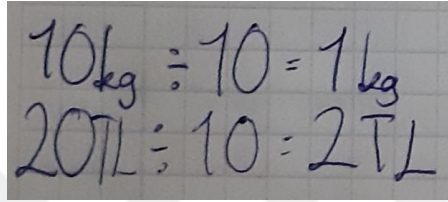 10kg ÷ 10 = 1kg
20TL ÷ 10 = 2TL